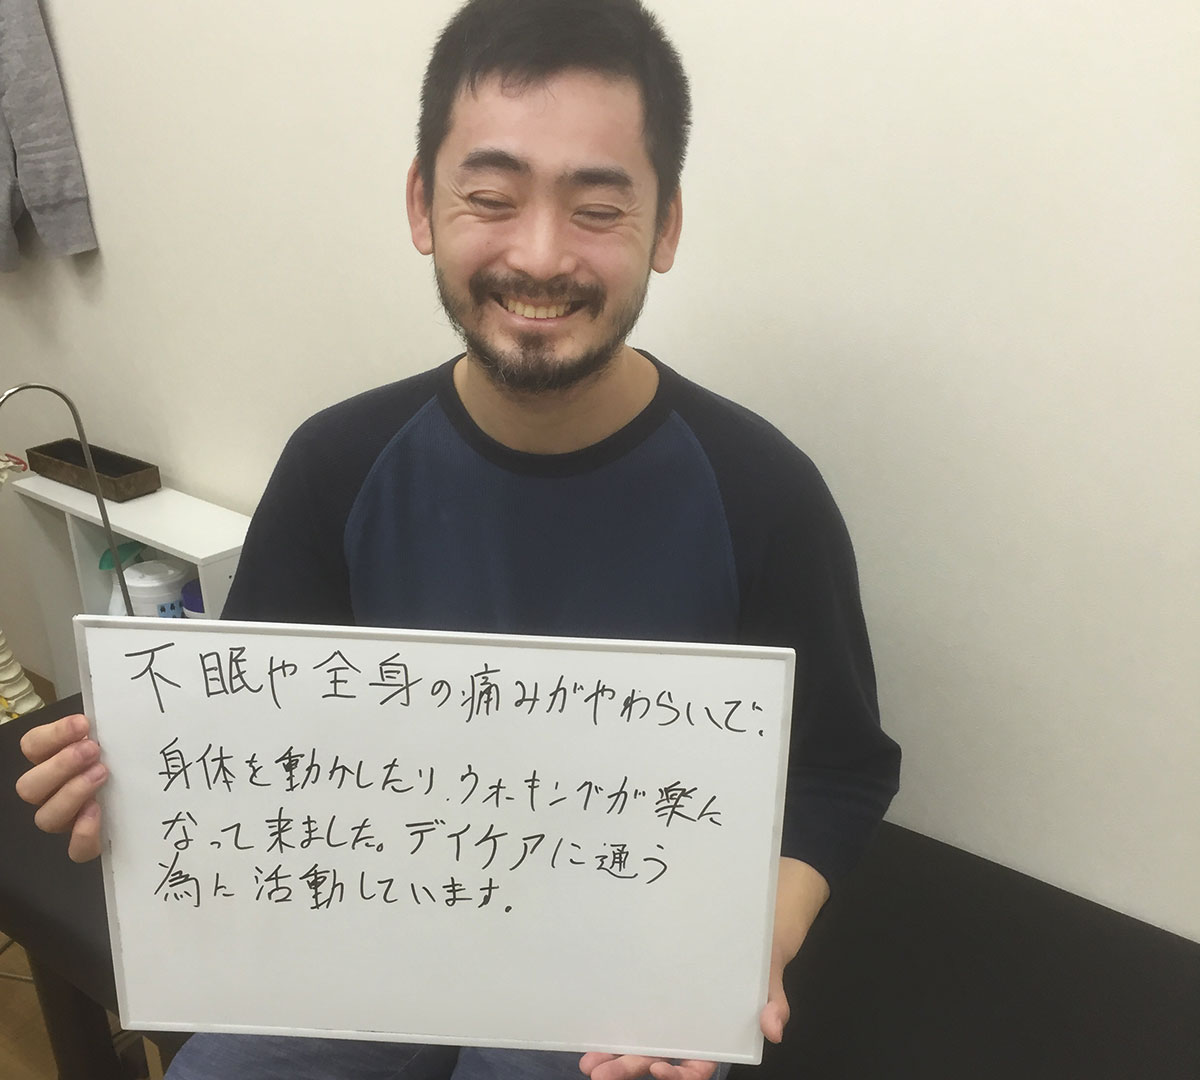 不眠や全身の痛みがやわらいで、
身体を動かしたり、ウォーキングが楽に
なって来ました。デイケアに通う
為に活動しています。